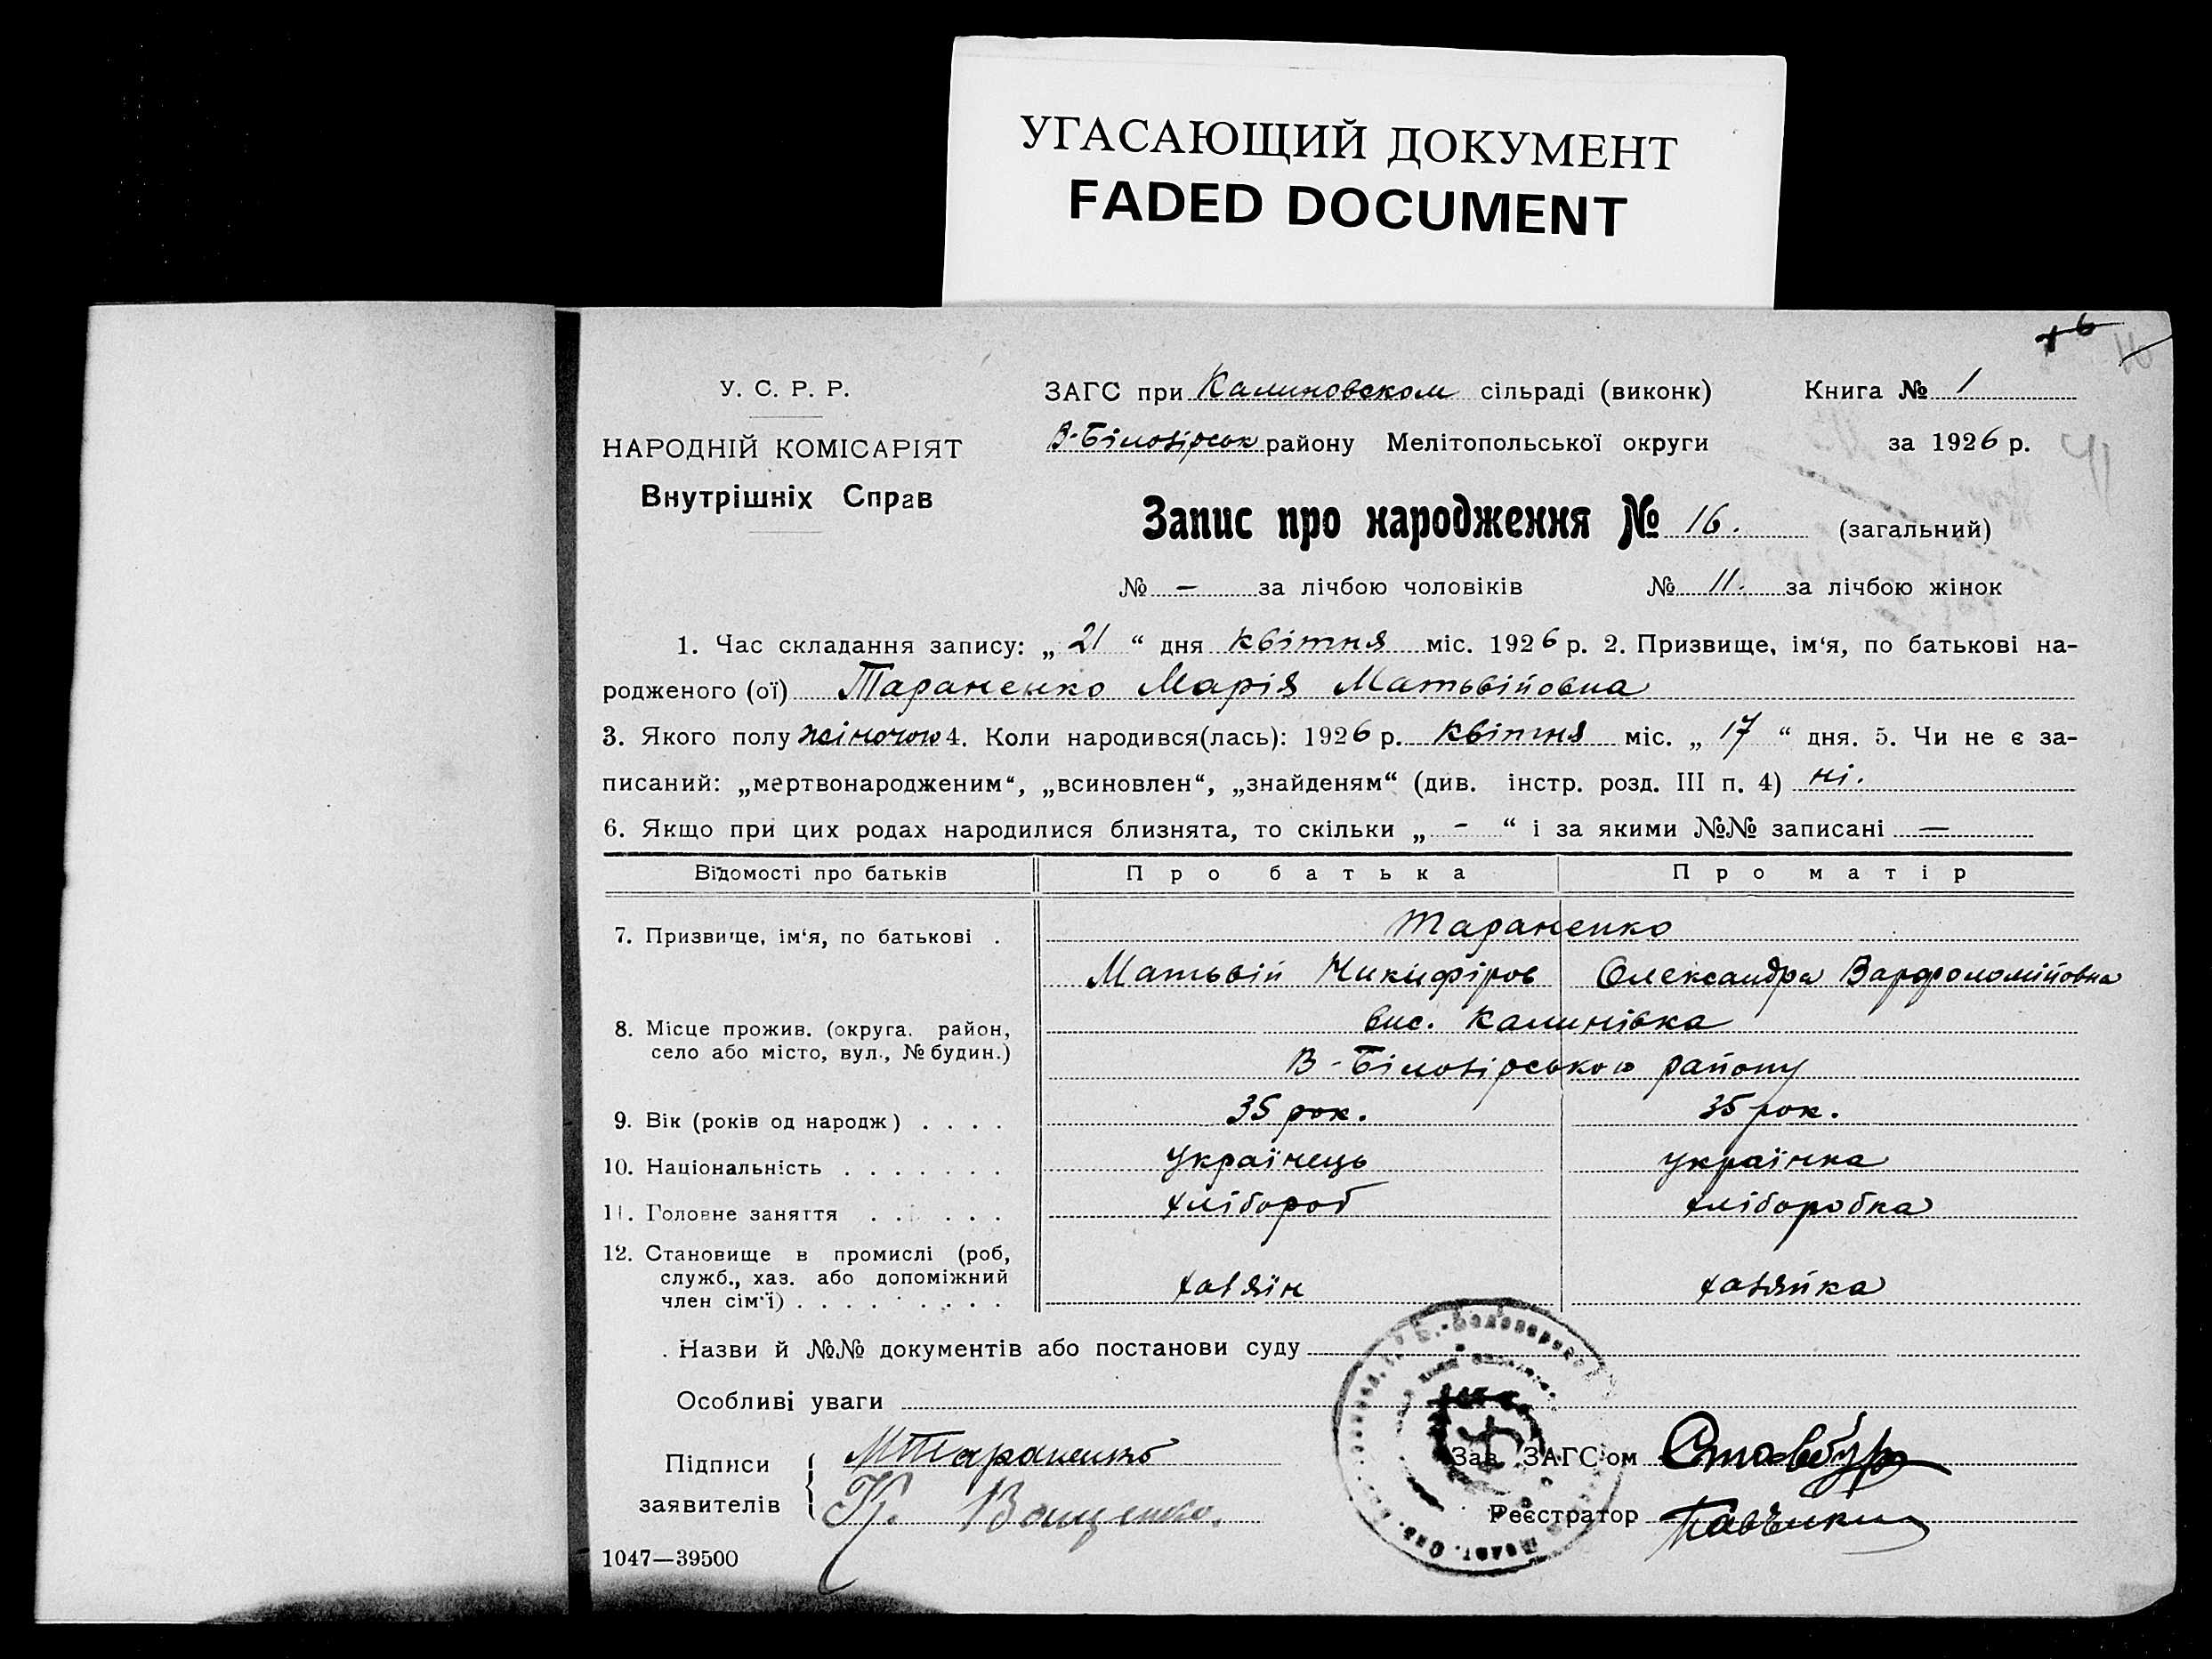 УГАСАЮЩИЙ ДОКУМЕНТ
FADED DOCUMENT
У. С. Р. Р.
НАРОДНІЙ КОМІСАРІЯТ
Внутрішніх Справ
ЗАГС при Калиновском сільраді (виконк)
Книга № 1
В-Білозірськ району Мелітопольської округи
за 1926 р.
Запис про народження № 16. (загальний)
№ — за лічбою чоловіків № 11. за лічбою жінок
1. Час складання запису: „ 21 “ дня квітня міс. 1926 р. 2. Призвище, ім‘я, по батькові на-
родженого (ої) Тараненко Марія Матьвійовна
3. Якого полу жіночого 4. Коли народився(лась): 1926 р. квітня міс. „ 17 “ дня. 5. Чи не є за-
писаний: „мертвонародженим“, „всиновлен“, „знайденям“ (див. інстр. розд. III п. 4) ні.
6. Якщо при цих родах народилися близнята, то скільки „ - “ і за якими №№ записані —
Відомості про батьків Про батька Про матір
7. Призвище, ім‘я, по батькові . Тараненко
Матьвій Никифіров Олександра Варфоломійовна
8. Місце прожив. (округа. район, село або місто, вул., № будин.) вис. Калинівка
В-Білозірського району
9. Вік (років од народж) . . . . 35 рок. 35 рок.
10. Національність . . . . . . . українець українка
11. Головне заняття . . . . . . хлібороб хліборобка
12. Становище в промислі (роб,
служб., хаз. або допоміжний
член сім‘ї) . . . . . . . . . хазяїн хазяйка
Назви й №№ документів або постанови суду
Особливі уваги
Підписи заявителів
МТараненко
К. Ващенко.
Зав. ЗАГС‘ом
Реєстратор
1047—39500